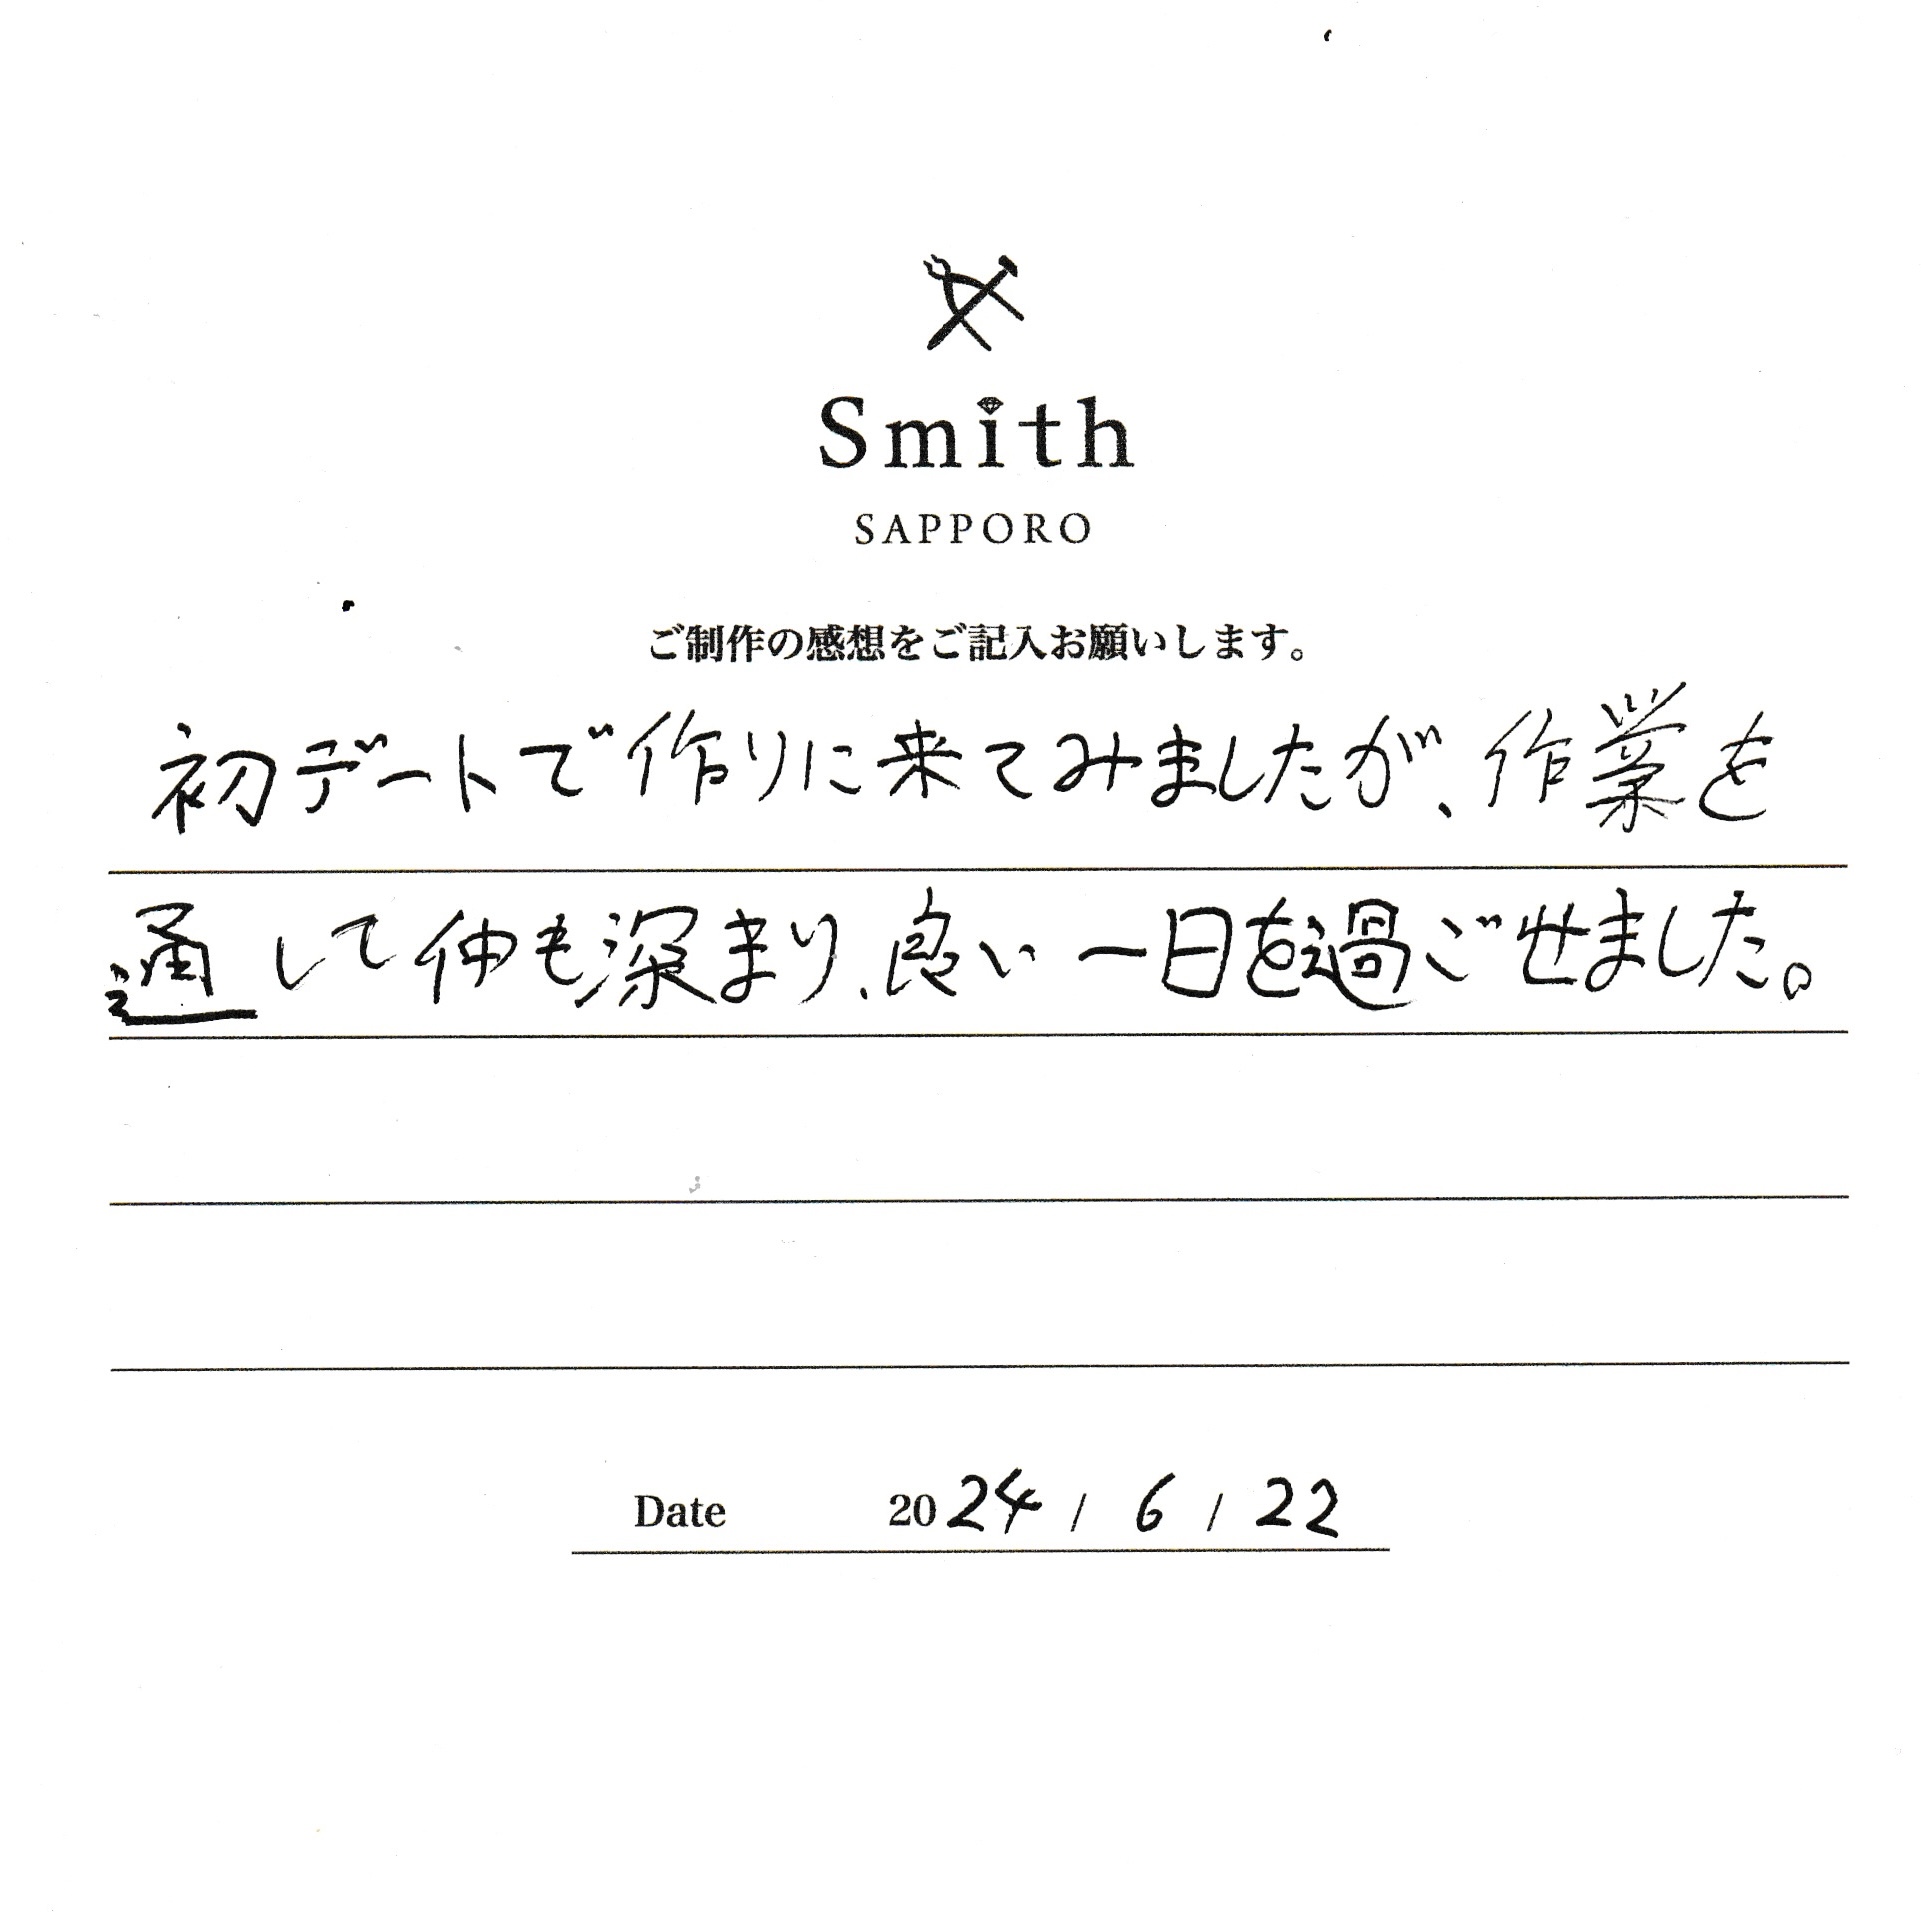 Smith
SAPPORO
ご制作の感想をご記入お願いします。
初デートで作りに来てみましたが、作業を
通して仲も深まり、良い一日を過ごせました。
Date 2024 / 6 / 22